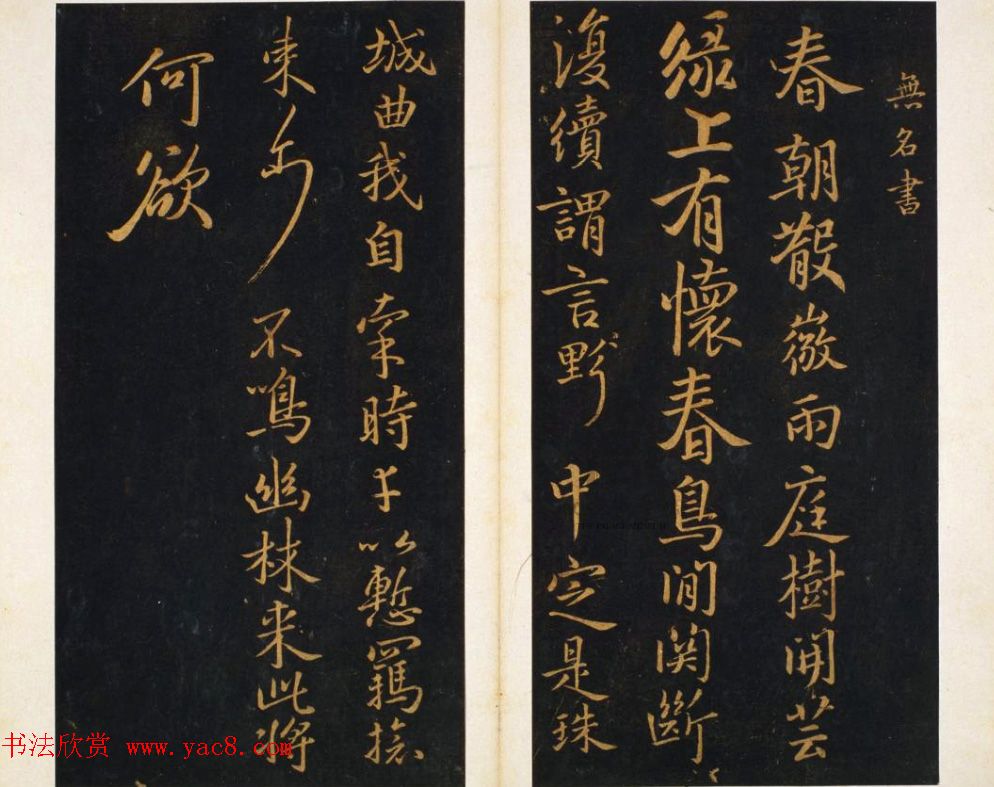 無名書
春朝散微雨庭樹開芸
緑上有懷春鳥間関斷
復續謂言野中定是珠
城曲我自牢時士以慙羈檢
東方不鳴幽林来此將
何欲
书法欣赏 www.yac8.com